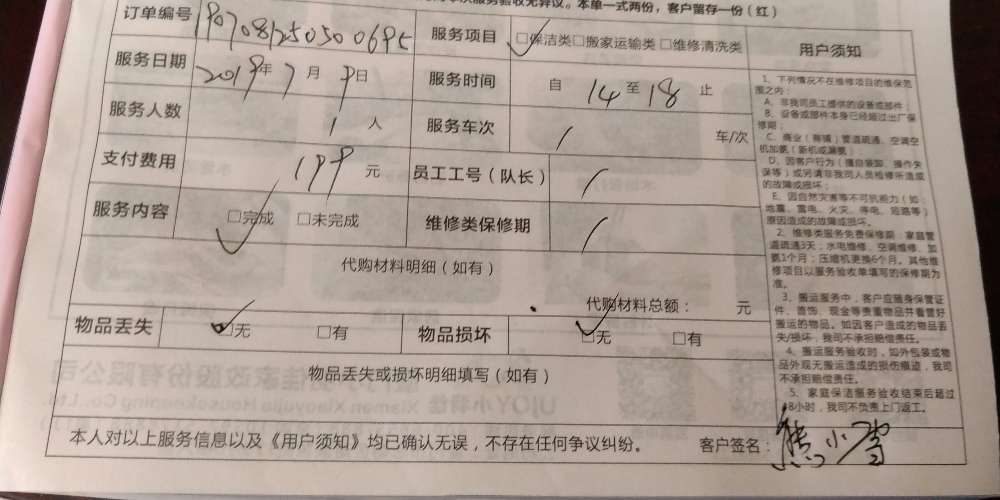 次服务验收无异议。本单一式两份，客户留存一份（红）
订单编号 服务项目 □保洁类□搬家运输类□维修清洗类 用户须知
服务日期 2019年7月9日 服务时间 自14至18止
服务人数 1人 服务车次 / 车/次
支付费用 199元 员工工号（队长） /
服务内容 □完成 □未完成 维修类保修期 /
代购材料明细（如有）
代购材料总额： 元
物品丢失 □无 □有 物品损坏 □无 □有
物品丢失或损坏明细填写（如有）
1、下列情况不在维修项目的维保范
围之内：
A、非我司员工提供的设备或部件；
B、设备或部件本身已经超过出厂保
修期；
C、商业（商铺）管道疏通、空调空
机加氨（新机或漏氨）
D、因客户行为（擅自装卸、操作失
误等）或另请非我司人员检修所造成
的故障或损坏；
E、因自然灾害等不可抗能力（如：
地震、雷电、火灾、停电、短路等）
原因造成的故障或损坏。
2、维修类服务免费保修期：家庭管
道疏通3天；水电维修、空调维修、加
氨1个月；压缩机更换6个月。其他维
修项目以服务验收单填写的保修期为
准。
3、搬运服务中，客户应随身保管证
件、首饰、现金等贵重物品并看管好
搬运的物品。如因客户造成的物品丢
失/损坏，我司不承担赔偿责任。
4、搬运服务验收时，如外包装或物
品外观无搬运造成的损伤痕迹，我司
不承担赔偿责任。
5、家庭保洁服务验收结束后超过
48小时，我司不负责上门返工。
本人对以上服务信息以及《用户须知》均已确认无误，不存在任何争议纠纷。 客户签名：熊小雪